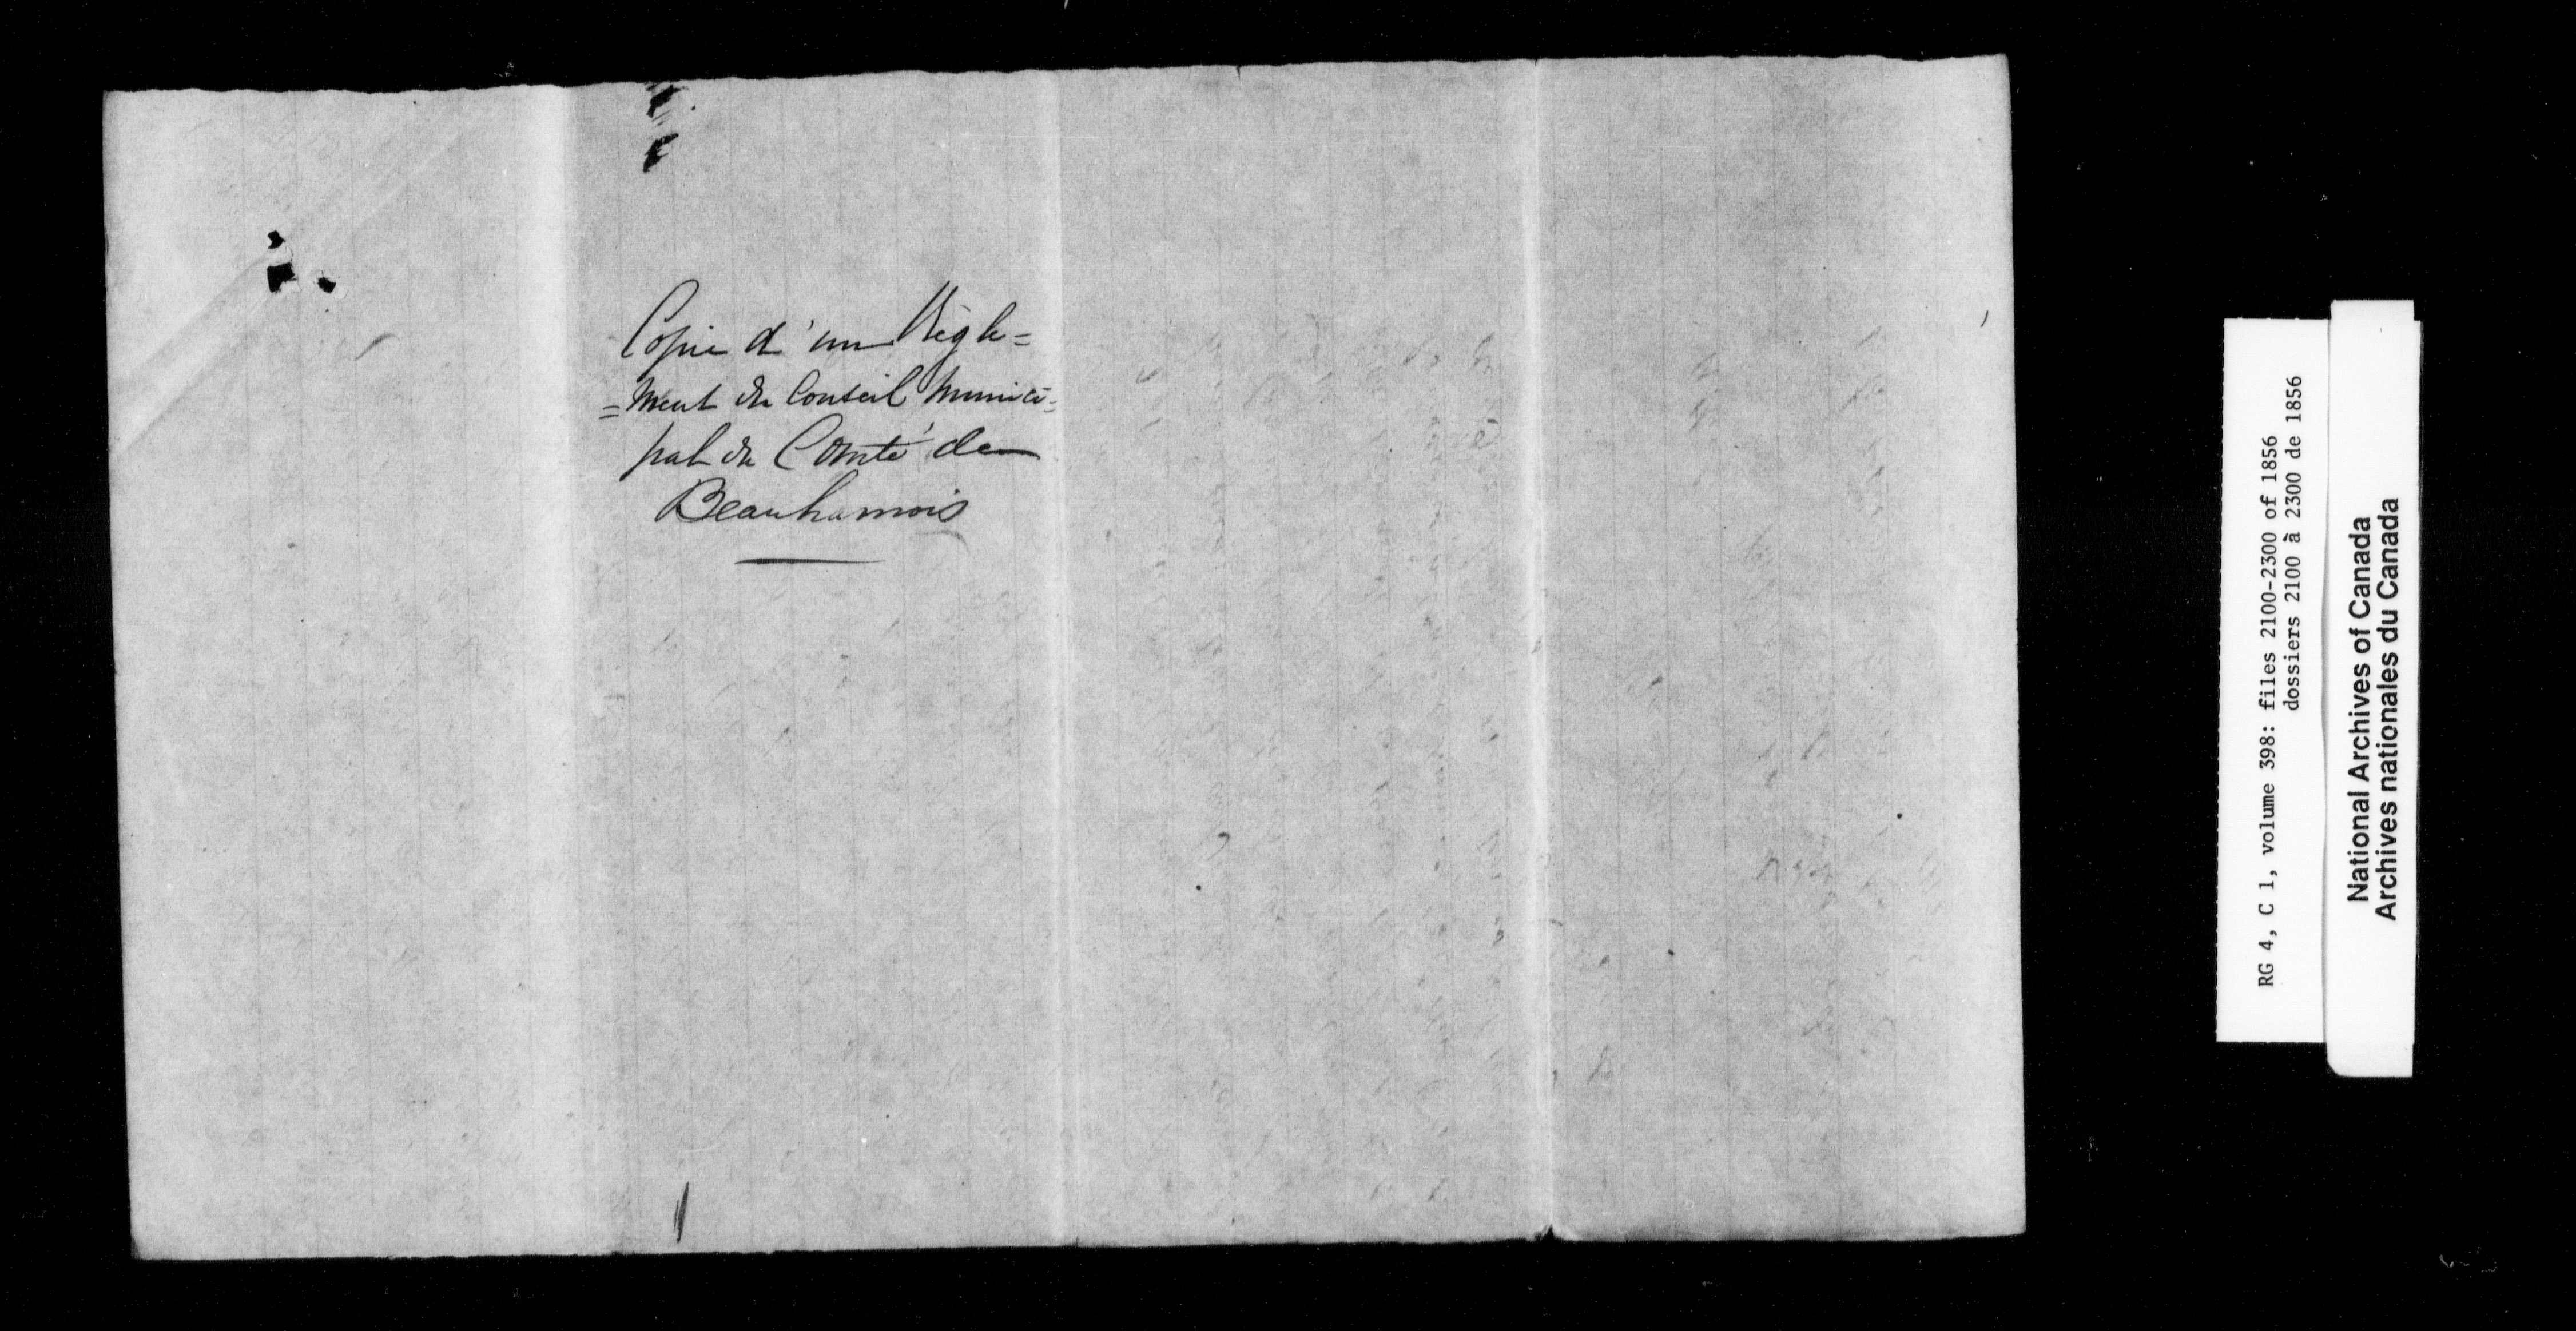 Copie d'un Règle=
=ment du Conseil Munici=
pal du Comté de
Beauharnois
RG 4, C 1, volume 398: files 2100-2300 of 1856
dossiers 2100 à 2300 de 1856
National Archives of Canada
Archives nationales du Canada